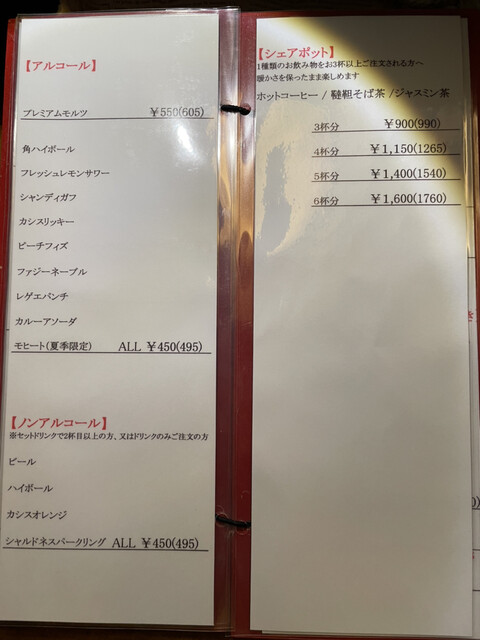 【アルコール】
プレミアムモルツ ￥550(605)
角ハイボール
フレッシュレモンサワー
シャンディガフ
カシスリッキー
ピーチフィズ
ファジーネーブル
レゲエパンチ
カルーアソーダ
モヒート(夏季限定) ALL ￥450(495)
【ノンアルコール】
※セットドリンクで2杯目以上の方、又はドリンクのみご注文の方
ビール
ハイボール
カシスオレンジ
シャルドネスパークリング ALL ￥450(495)
【シェアポット】
1種類のお飲み物をお3杯以上ご注文される方へ
暖かさを保ったまま楽しめます
ホットコーヒー / 韃靼そば茶 /ジャスミン茶
3杯分 ￥900(990)
4杯分 ￥1,150(1265)
5杯分 ￥1,400(1540)
6杯分 ￥1,600(1760)